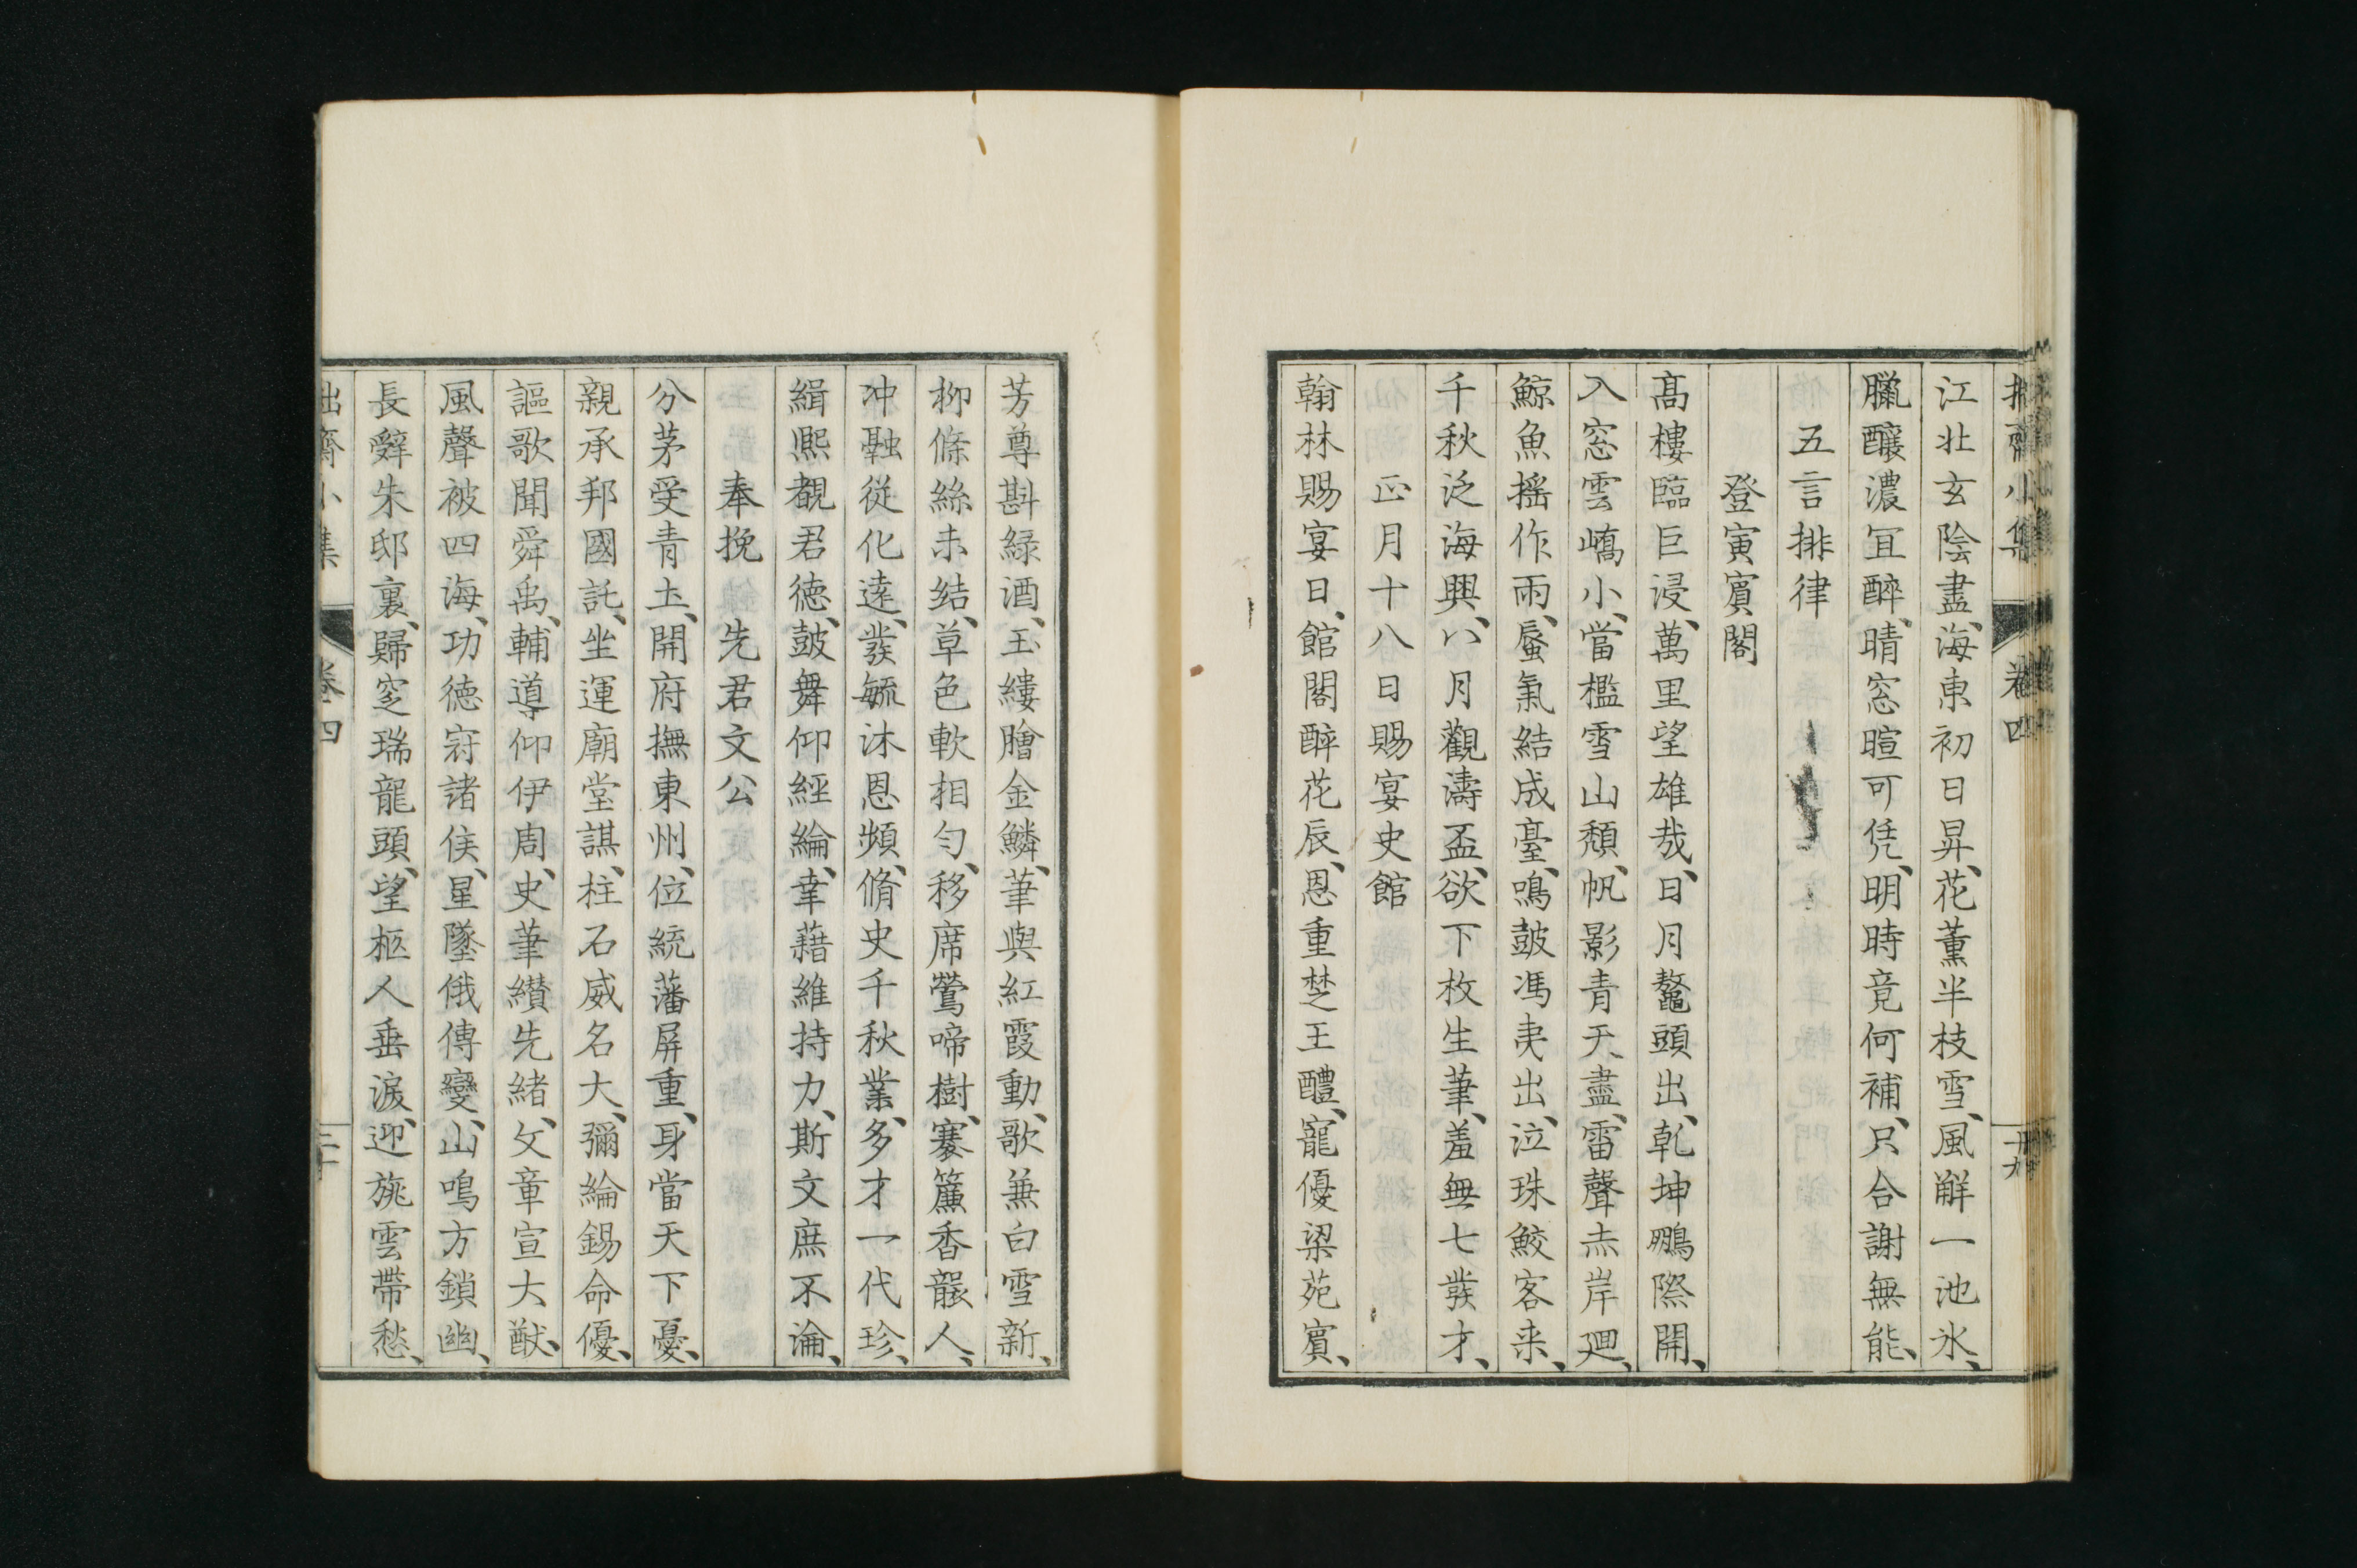 江北玄陰盡、海東初日昇、花薰半枝雪、風解一池氷、
臘釀濃冝醉、晴窓暄可凭、明時竟何補、只合謝無能、
五言排律
登寅賓閣
髙樓臨巨浸、萬里望雄哉、日月鼇頭出、乾坤鵬際開、
入窓雲嶠小、當檻雪山頽、帆影青天盡、雷聲赤岸廻、
鯨魚摇作雨、蜃氣結成臺、鳴鼓馮夷出、泣珠鮫客来、
千秋泛海興、八月觀濤盃、欲下枚生筆、羞無七發才、
正月十八日賜宴史館
翰林賜宴日、館閣醉花辰、恩重楚王醴、寵優梁苑賓、
卷四
芳尊斟緑酒、玉縷膾金鱗、筆與紅霞動、歌兼白雪新、
柳條絲未結、草色軟相勻、移席鶯啼樹、褰簾香襲人、
冲融從化達、發毓沐恩頻、脩史千秋業、多才一代珍、
緝熙覩君德、鼓舞仰經綸、幸藉維持力、斯文庶不淪、
奉挽先君文公
分茅受青土、開府撫東州、位統藩屏重、身當天下憂、
親承邦國託、坐運廟堂謀、柱石威名大、彌綸錫命優、
謳歌聞舜禹、輔導仰伊周、史筆纉先緒、文章宣大猷、
風聲被四海、功德冠諸侯、星墜俄傳變、山鳴方鎖幽、
長辭朱邸裏、歸窆瑞龍頭、望柩人垂淚、迎旐雲帶愁、
拙齋小集 卷四